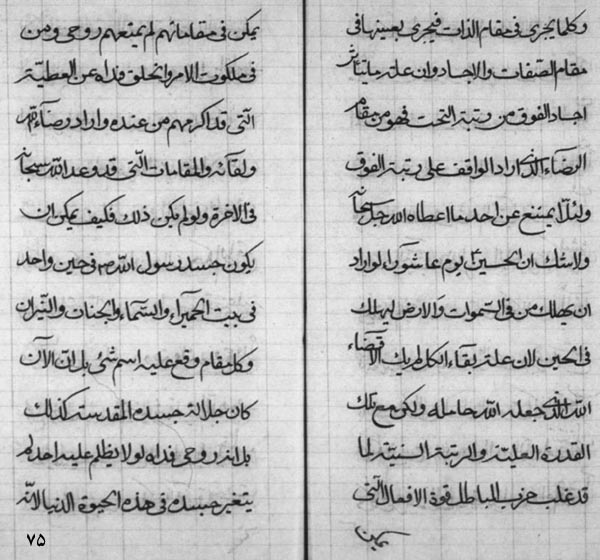 وكلما يجرى فى مقام الذات فيجرى بعينها فى
مقام الصفات والاجساد وان علة ما يتأثر
اجساد الفوق من رتبة التحت فهو من مقام
الرضاء الذى اراد الواقف على رتبة الفوق
ولئلا يمتنع عن احد ما اعطاه الله جل سبحانه
ولا شك ان الحسين يوم عاشورا لو اراد
ان يهلك من فى السموات والارض ليهلك
فى الحين لان علة بقاء الكل لم يك الا قضاء
الله الذى جعله الله حامله ولكن مع تلك
القدرة العلية والرتبة السنية لما
قد غلب حزب الباطل قوة الافعال التى
يمكن
يمكن فى مقاماتهم لم يمنعهم روحى ومن
فى ملكوت الامر والخلق فداه عن العطية
التى قد اكرمهم من عنده واراد رضاء الله
ولقائه والمقامات التى قد وعد الله سبحانه
فى الاخرة ولو لم يكن ذلك فكيف يمكن ان
يكون جسد رسول الله ص فى حين واحد
فى بيت الحميراء والسماء والجنان والنيران
وكل مقام وقع عليه اسم شئ بل ان الآن
كان جلالة جسده المقدسة كذلك
بل انه روحى فداه لو لا يظلم عليه احد لم
يتغير جسده فى هذه الحيوة الدنيا لانه
۷۵